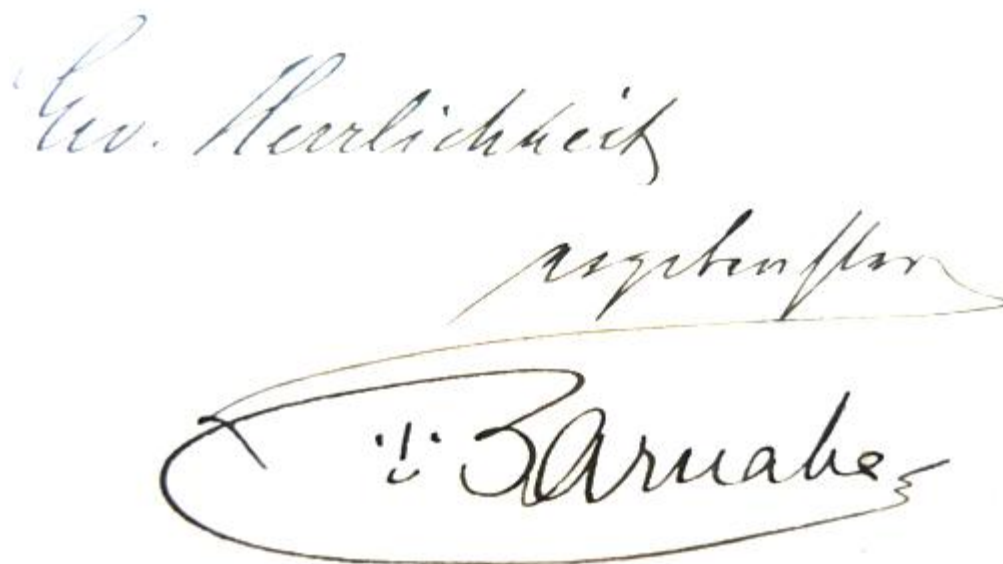 Ew. Herrlichkeit
ergebenster
Barnabe